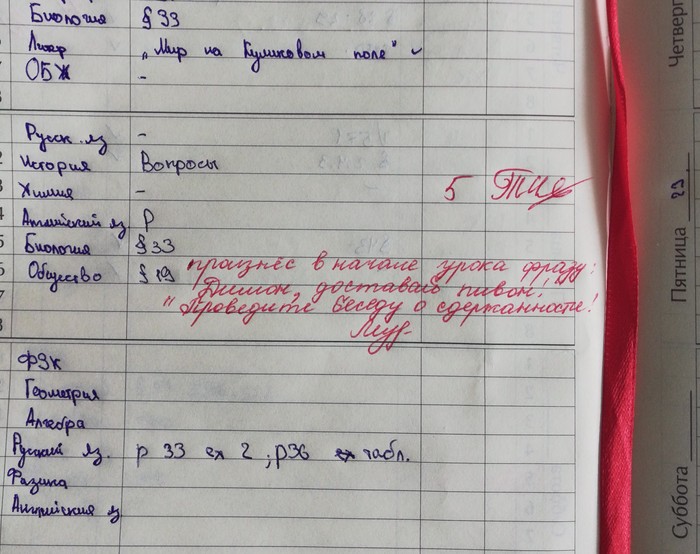 Биология § 33
Литер „Мир на Куликовом поле"
ОБЖ -
Русск. яз -
История Вопросы
Химия - 5
Английский яз Р
Биология § 33
Общество § 19 произнёс в начале урока фразу:
Димон, доставай пивон!
"Проведите беседу о сдержанности!
ФЗК
Геометрия
Алгебра
Русский яз. р 33 ех 2 ; р36 табл.
Физика
Английский яз
Четверг
Пятница 29
Суббота